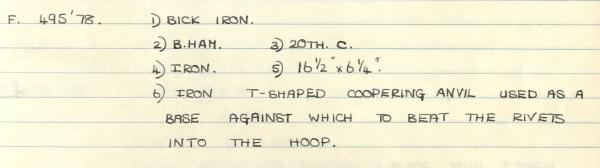 F. 495'78. 1) BICK IRON.
2) B.HAM. 3) 20TH. C.
4) IRON. 5) 16 1/2" x 6 1/4".
6) IRON T-SHAPED COOPERING ANVIL USED AS A
BASE AGAINST WHICH TO BEAT THE RIVETS
INTO THE HOOP.